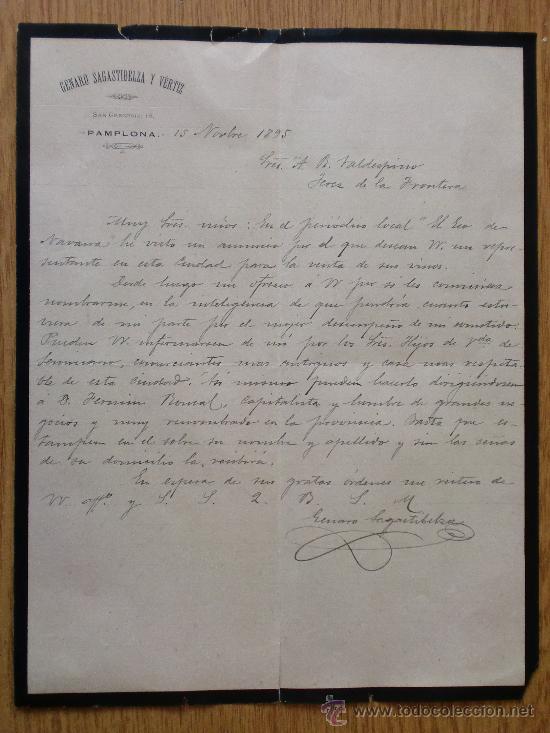 GENARO SAGASTIBELZA Y VÉRTIZ
PAMPLONA. 15 Novbre 1895
Sres. A. R. Valdespino
Jerez de la Frontera
Muy Sres. mios: En el periódico local "El Eco de
Navarra" he visto un anuncio por el que desean VV. un repre-
sentante en esta Ciudad para la venta de sus vinos.
Desde luego me ofrezco á VV por si les conviniese
nombrarme, en la inteligencia de que pondria cuanto estu-
viera de mi parte por el mejor desempeño de mi cometido.
Pueden VV. informarsen de mi por los Sres. Hijos de Vda. de
comerciantes mas antiguos y casa mas respeta-
ble de esta Ciudad. Asi mismo pueden hacerlo dirigiendosen
á D. Fermin Roncal, capitalista y hombre de grandes ne-
gocios y muy renombrado en la provincia. Basta que es-
tampen en el sobre su nombre y apellido y sin las señas
de su domicilio la recibirá.
En espera de sus gratas órdenes me reitero de
VV. affo. y S. S. Q. B. S. M.
Genaro Sagastibelza
todocoleccion.net